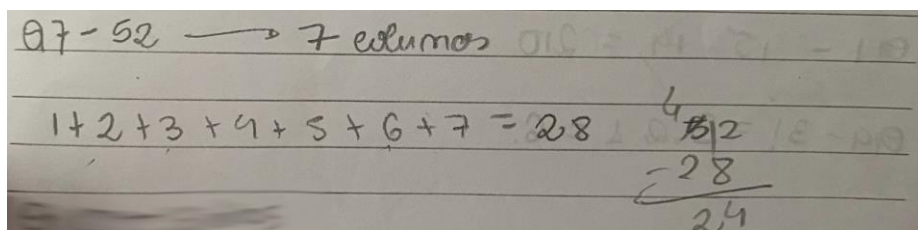 Q7 - 52 → 7 colunas
1 + 2 + 3 + 4 + 5 + 6 + 7 = 28
4
52
- 28
24